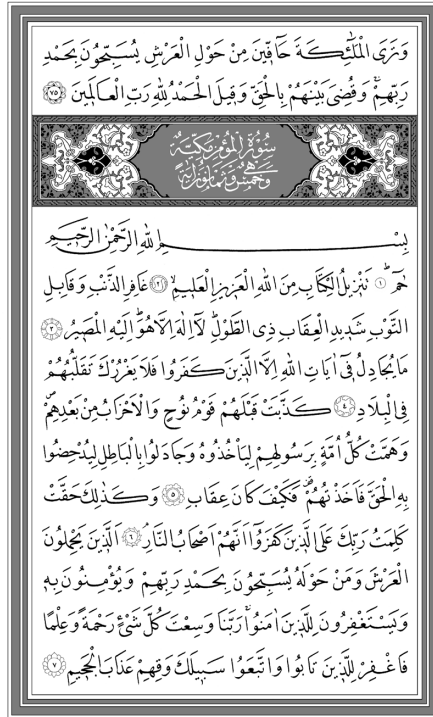 وَتَرَى الْمَلٰٓئِكَةَ حَٓافّٖينَ مِنْ حَوْلِ الْعَرْشِ يُسَبِّحُونَ بِحَمْدِ
رَبِّهِمْۚ وَقُضِىَ بَيْنَهُمْ بِالْحَقِّ وَقٖيلَ الْحَمْدُ لِلّٰهِ رَبِّ الْعَالَمٖينَ ﴿٧٥﴾
سُورَةُ الْمُؤْمِنِ مَكِّيَّةٌ
وَهِيَ خَمْسٌ وَثَمَانُونَ اٰيَةً
بِسْمِ اللّٰهِ الرَّحْمٰنِ الرَّحٖيمِ
حٰمٓۚ ﴿١﴾ تَنْزٖيلُ الْكِتَابِ مِنَ اللّٰهِ الْعَزٖيزِ الْعَلٖيمِۙ ﴿٢﴾ غَافِرِ الذَّنْبِ وَقَابِلِ
التَّوْبِ شَدٖيدِ الْعِقَابِ ذِى الطَّوْلِۜ لَٓا اِلٰهَ اِلَّا هُوَۜ اِلَيْهِ الْمَصٖيرُ ﴿٣﴾
مَا يُجَادِلُ فٖٓى اٰيَاتِ اللّٰهِ اِلَّا الَّذٖينَ كَفَرُوا فَلَا يَغْرُرْكَ تَقَلُّبُهُمْ
فِى الْبِلَادِ ﴿٤﴾ كَذَّبَتْ قَبْلَهُمْ قَوْمُ نُوحٍ وَالْاَحْزَابُ مِنْ بَعْدِهِمْۖ
وَهَمَّتْ كُلُّ اُمَّةٍ بِرَسُولِهِمْ لِيَاْخُذُوهُ وَجَادَلُوا بِالْبَاطِلِ لِيُدْحِضُوا
بِهِ الْحَقَّ فَاَخَذْتُهُمْ۠ فَكَيْفَ كَانَ عِقَابِ ﴿٥﴾ وَكَذٰلِكَ حَقَّتْ
كَلِمَتُ رَبِّكَ عَلَى الَّذٖينَ كَفَرُٓوا اَنَّهُمْ اَصْحَابُ النَّارِۢ ﴿٦﴾ اَلَّذٖينَ يَحْمِلُونَ
الْعَرْشَ وَمَنْ حَوْلَهُ يُسَبِّحُونَ بِحَمْدِ رَبِّهِمْ وَيُؤْمِنُونَ بِهٖ
وَيَسْتَغْفِرُونَ لِلَّذٖينَ اٰمَنُواۚ رَبَّنَا وَسِعْتَ كُلَّ شَىْءٍ رَحْمَةً وَعِلْمًا
فَاغْفِرْ لِلَّذٖينَ تَابُوا وَاتَّبَعُوا سَبٖيلَكَ وَقِهِمْ عَذَابَ الْجَحٖيمِ ﴿٧﴾